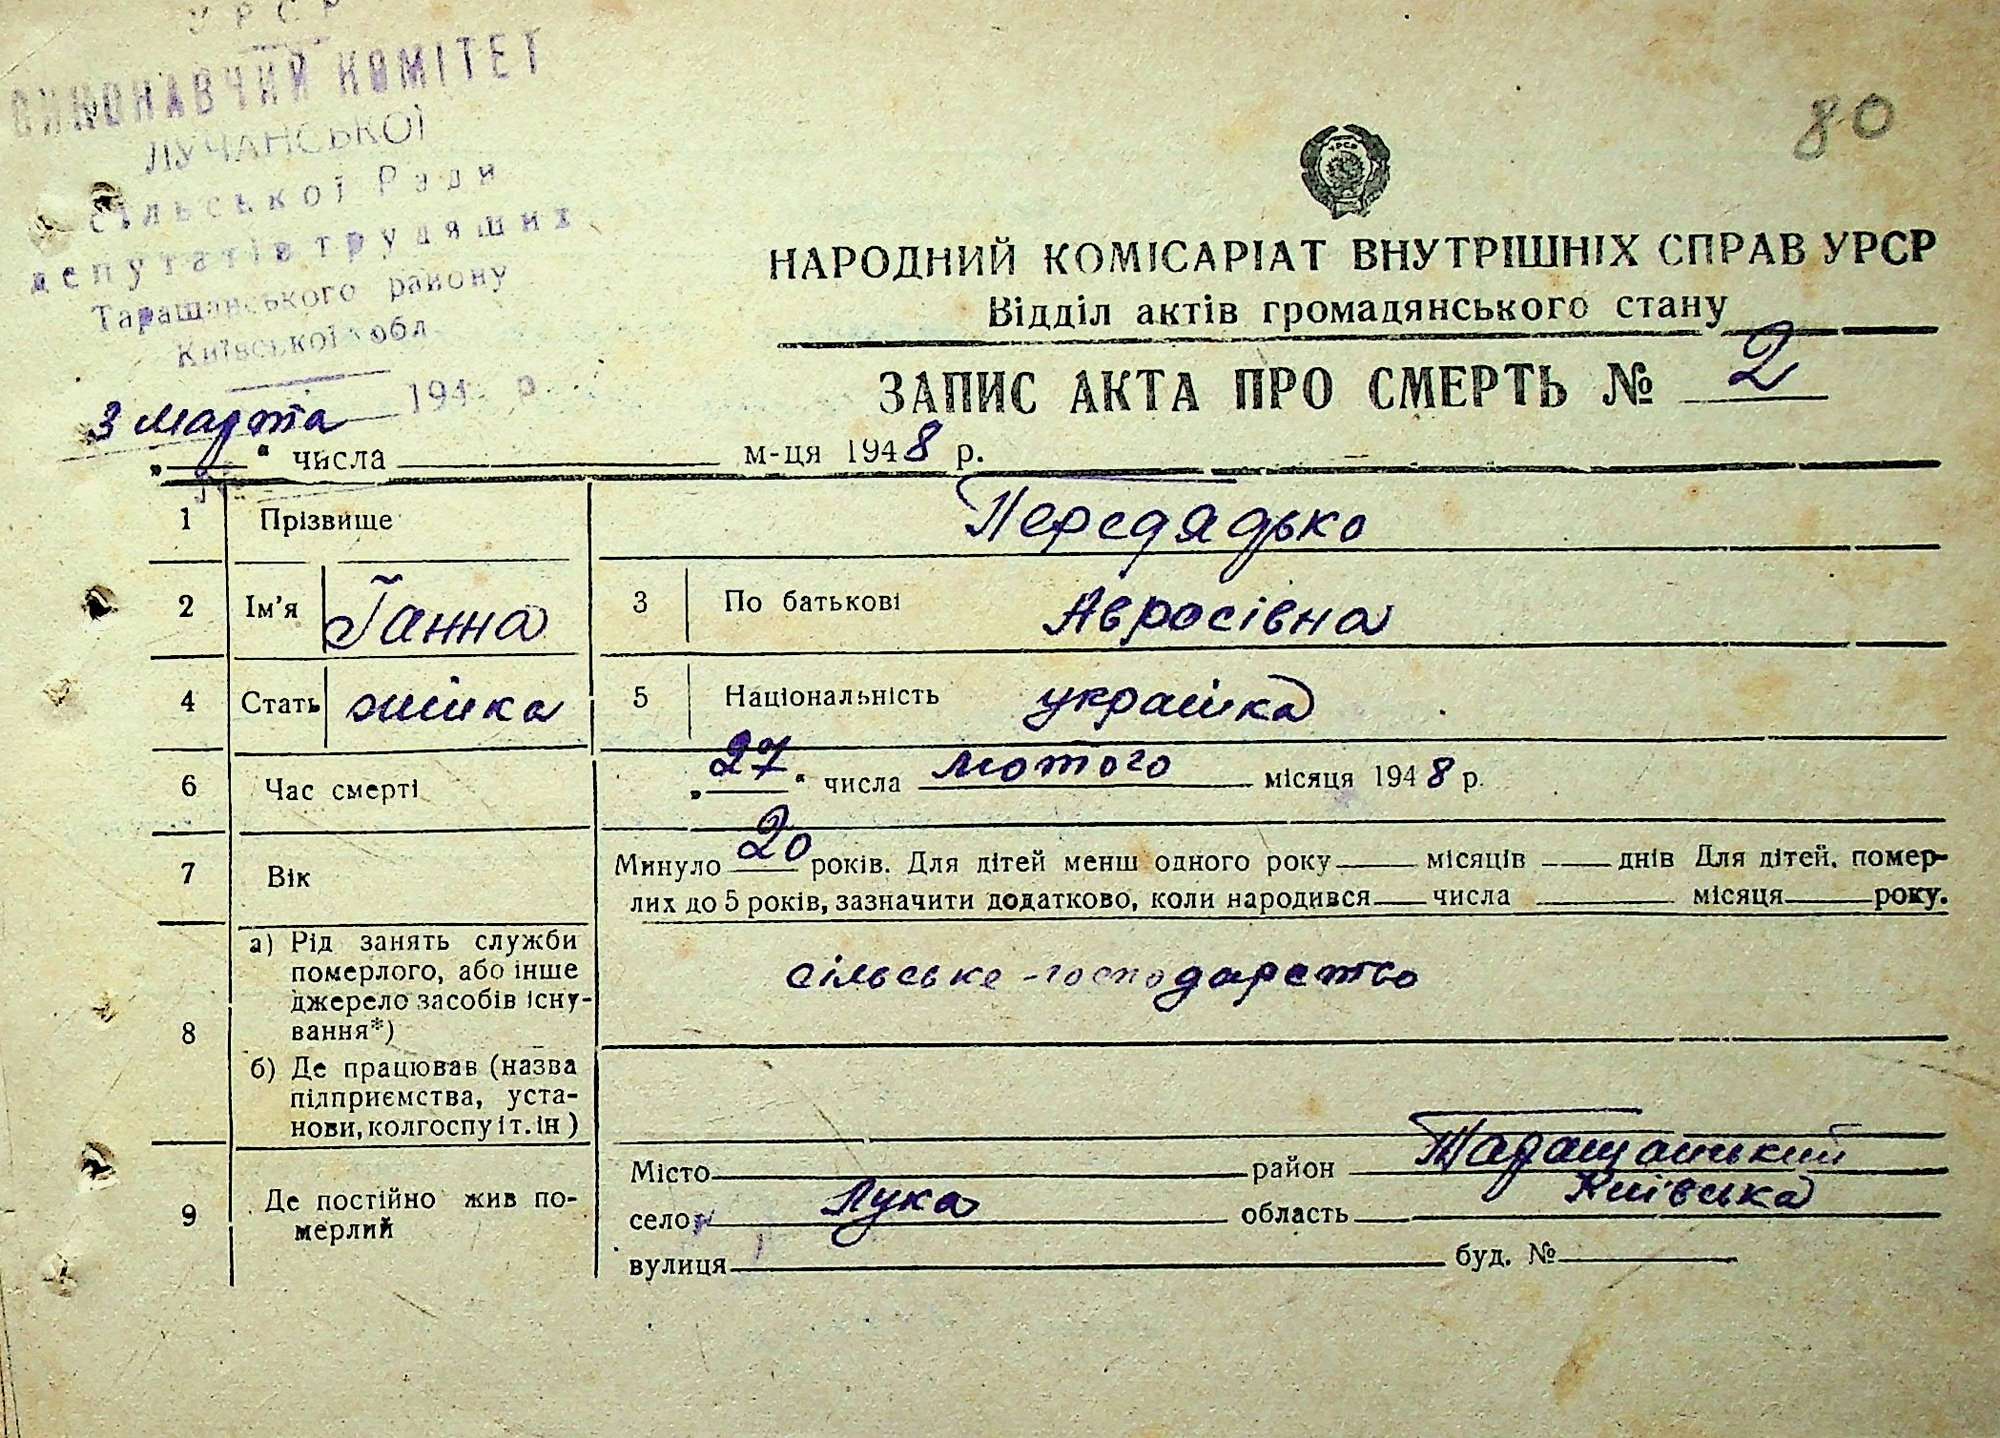 УРСР
ВИКОНАВЧИЙ КОМІТЕТ
ЛУЧАНСЬКОЇ
сільської Ради
депутатів трудящих
Таращанського району
Київської обл.
194 р.
3 марта
80
УРСР
НАРОДНИЙ КОМІСАРІАТ ВНУТРІШНІХ СПРАВ УРСР
Відділ актів громадянського стану
ЗАПИС АКТА ПРО СМЕРТЬ № 2
„ “ числа м-ця 1948 р.
1 Прізвище Передядько
2 Ім'я Ганна 3 По батькові Авросівна
4 Стать жінка 5 Національність украінка
6 Час смерті „27“ числа лютого місяця 1948 р.
7 Вік Минуло 20 років. Для дітей менш одного року місяців днів Для дітей, помер-
лих до 5 років, зазначити додатково, коли народився числа місяця року.
8 а) Рід занять служби
померлого, або інше
джерело засобів існу-
вання*)
сільське-господарство
б) Де працював (назва
підприємства, уста-
нови, колгоспу і т. ін)
9 Де постійно жив по-
мерлий
Місто район Таращанський
село Лука область Київська
вулиця буд. №